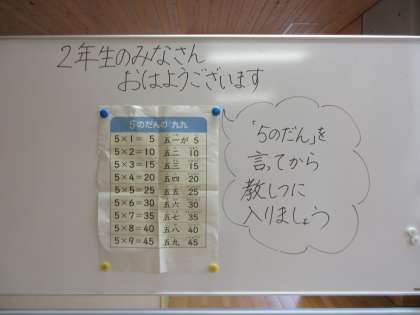 2年生のみなさん
おはようございます
5のだんの九九
5×1= 5 五一が 5
5×2=10 五二 10
5×3=15 五三 15
5×4=20 五四 20
5×5=25 五五 25
5×6=30 五六 30
5×7=35 五七 35
5×8=40 五八 40
5×9=45 五九 45
「5のだん」を
言ってから
教しつに
入りましょう